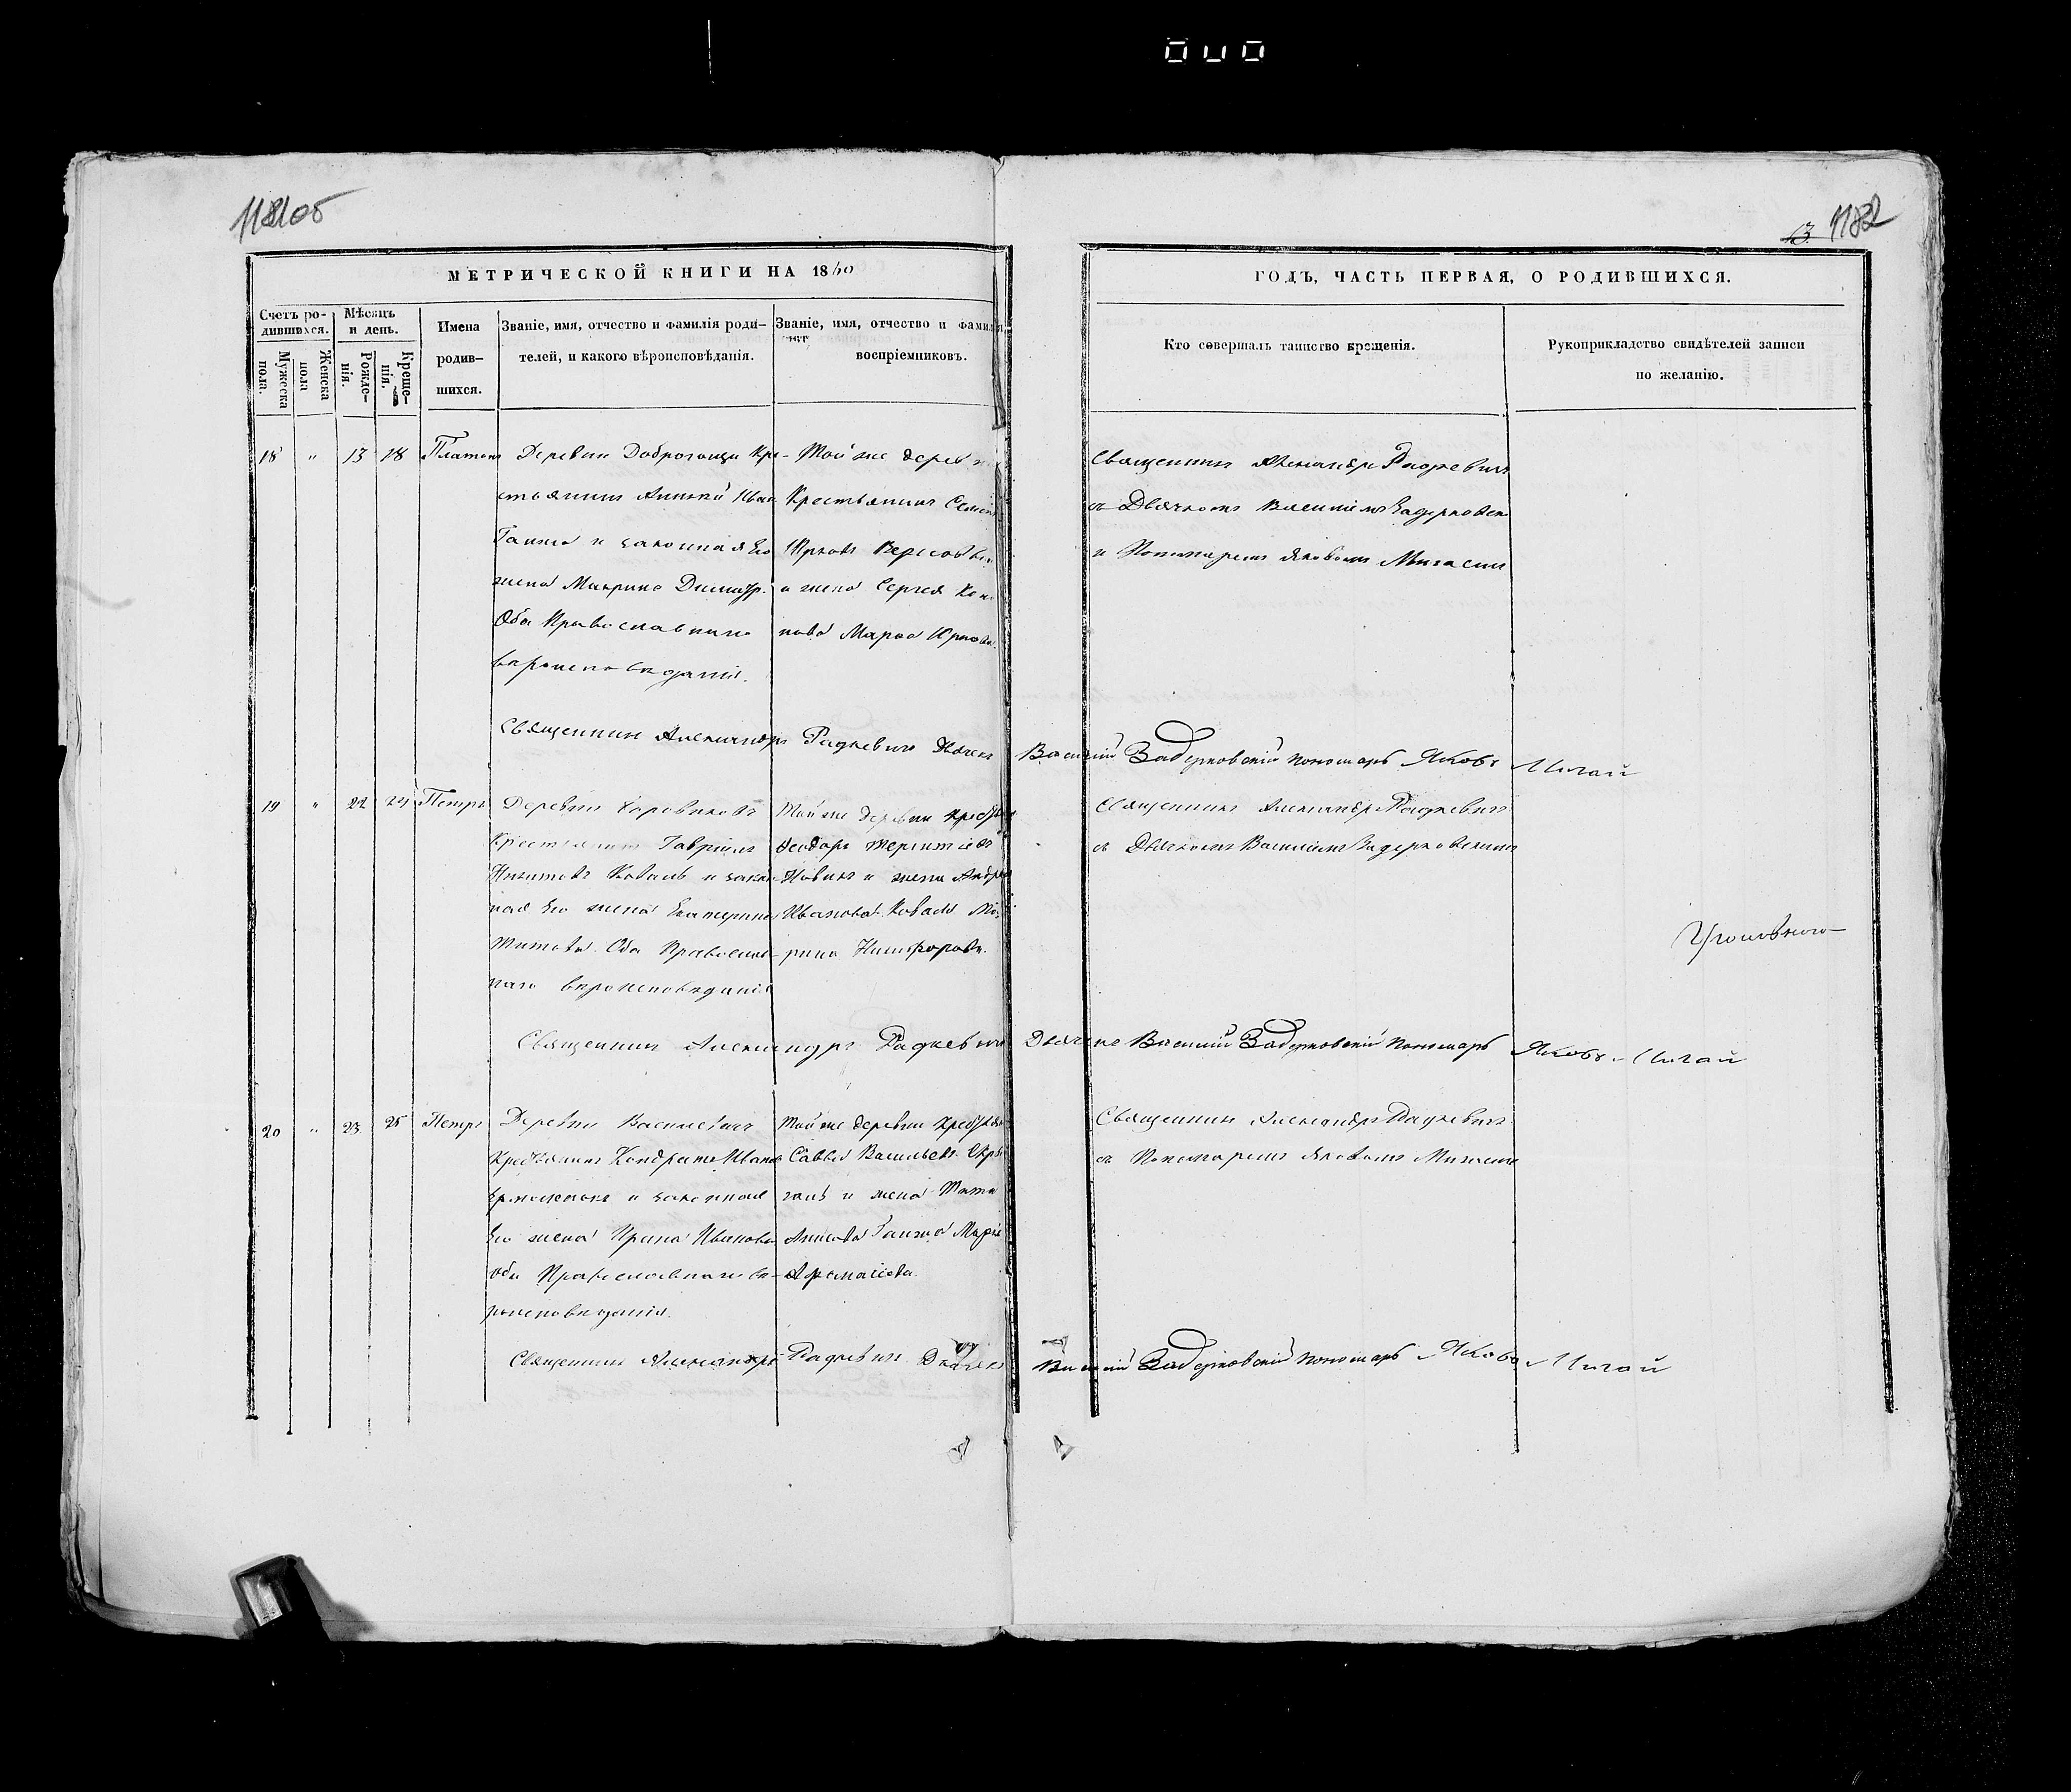 1182
МЕТРИЧЕСКОЙ КНИГИ НА 1860
ГОДЪ, ЧАСТЬ ПЕРВАЯ, О РОДИВШИХСЯ.
Счетъ ро-
дившихся.
Мужеска пола.
Женска пола
Мѣсяцъ
и день.
Рожде-
нія.
Креще-
нія.
Имена
родив-
шихся.
Званіе, имя, отчество и фамилія роди-
телей, и какого вѣроисповѣданія.
Званіе, имя, отчество и фамилія
воспріемниковъ.
Кто совершалъ таинство крещенія.
Рукоприкладство свидѣтелей записи
по желанію.
18 " 13 18 Платонъ
Деревни Доброгоща Кре-
стьянинъ Иван
и законная Его
жена Димитр.
Оба Православнаго
вѣроисповѣданія.
Той же дерев
Крестьянинъ Семенъ
и жена Сергея
Марѳа Юрков
Священникъ Александръ Радкевичъ
съ Дьячкомъ Василіемъ Задерковск
и Пономаремъ Яковомъ Мигаемъ
Священникъ Александръ Радкевичъ Дьячекъ Василій Задерковскій Пономарь Яковъ Мигай
19 " 22 24 Петръ
Деревни
Крестьянинъ Гавріилъ
Никитовъ Коваль и закон-
ная Его жена Екатерина
Титова. Оба Православ-
наго вѣроисповѣданія
Той же деревни Крестьян
Ѳеодоръ Терентіевъ
Новикъ и жена Андрея
Иванова Коваля
Никифорова.
Священникъ Александръ Радкевичъ
съ Дьячкомъ Василіемъ Задерковскимъ
Священникъ Александръ Радкевичъ Дьячекъ Василій Задерковскій Пономарь Яковъ Мигай
20 " 23 25 Петръ
Деревни Василевичъ
Крестьянинъ Кондратъ Иванов
и законная
Его жена Ирина Иванова
оба Православнаго вѣ-
роисповѣданія.
Той же деревни Крестьян
Савва Васильевъ
и жена Тита
Марія
Афанасіева.
Священникъ Александръ Радкевичъ
съ Пономаремъ Яковомъ Мигаемъ
Священникъ Александръ Радкевичъ Дьячекъ Василій Задерковскій Пономарь Яковъ Мигай